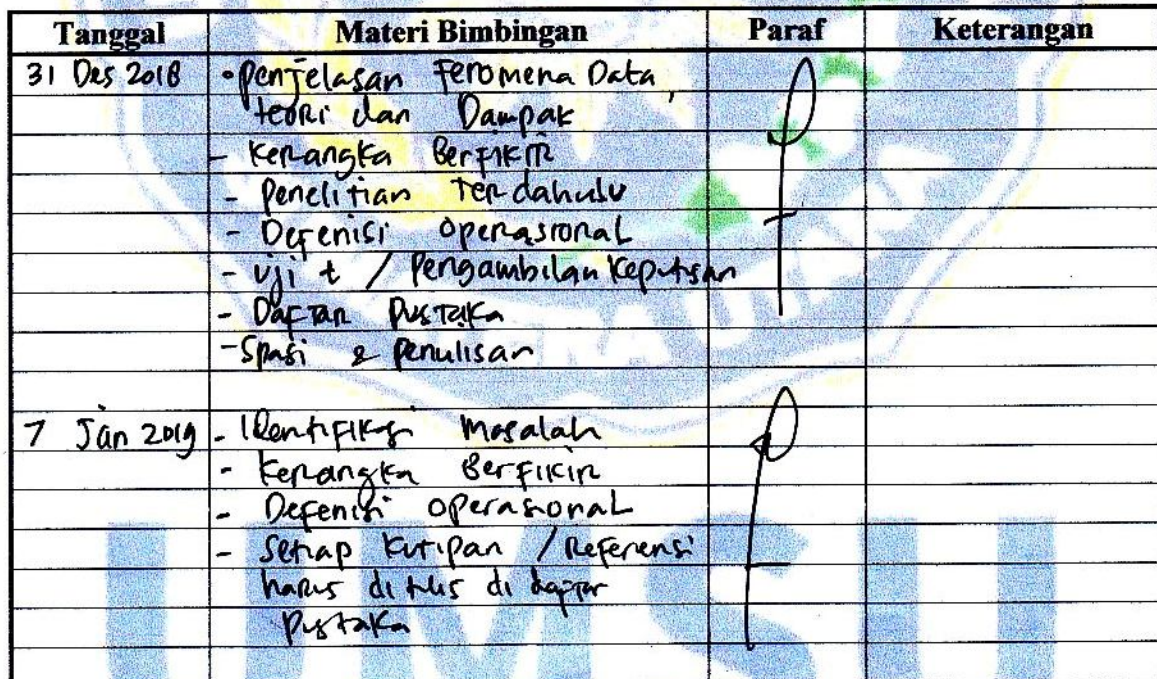 Tanggal Materi Bimbingan Paraf Keterangan
31 Des 2018 • Penjelasan Feromena Data,
teori dan Dampak
- Kerangka Berfikir
- Penelitian Terdahulu
- Defenisi Operasional
- Uji t / Pengambilan Keputusan
- Daftar Pustaka
- Spasi & Penulisan
7 Jan 2019 - Identifikasi Masalah
- Kerangka Berfikir
- Defenisi Operasional
- Setiap Kutipan / Referensi
harus di tulis di daftar
Pustaka
UMSU